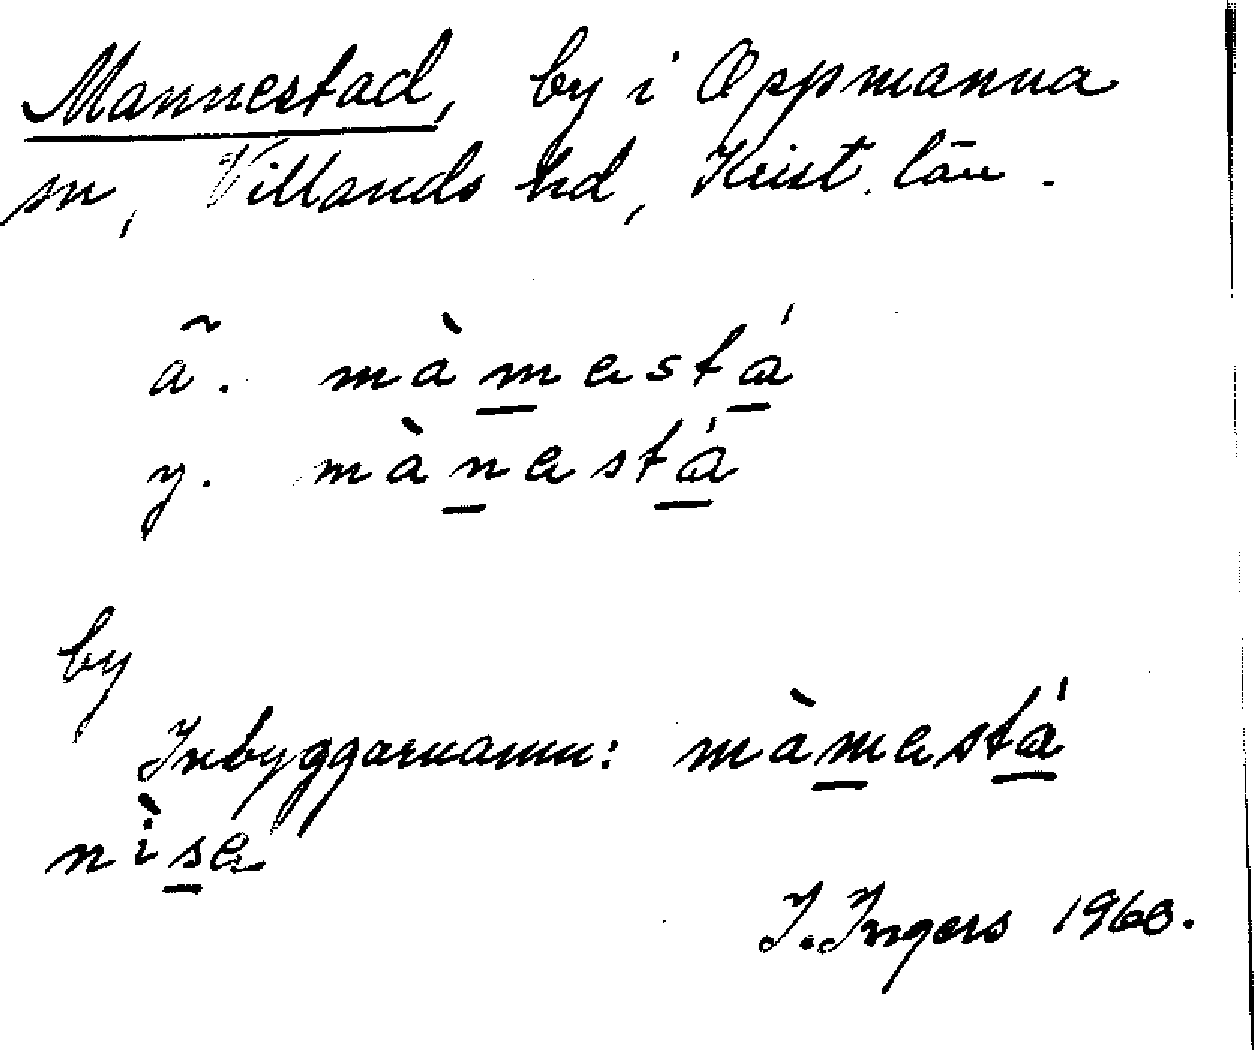 Mannestad, by i Oppmanna
sn, Villands hd, Krist. län.
ã. màmestá
y. mànestá
by
Inbyggarnamn: màmestá
nìse
I. Ingers 1960.